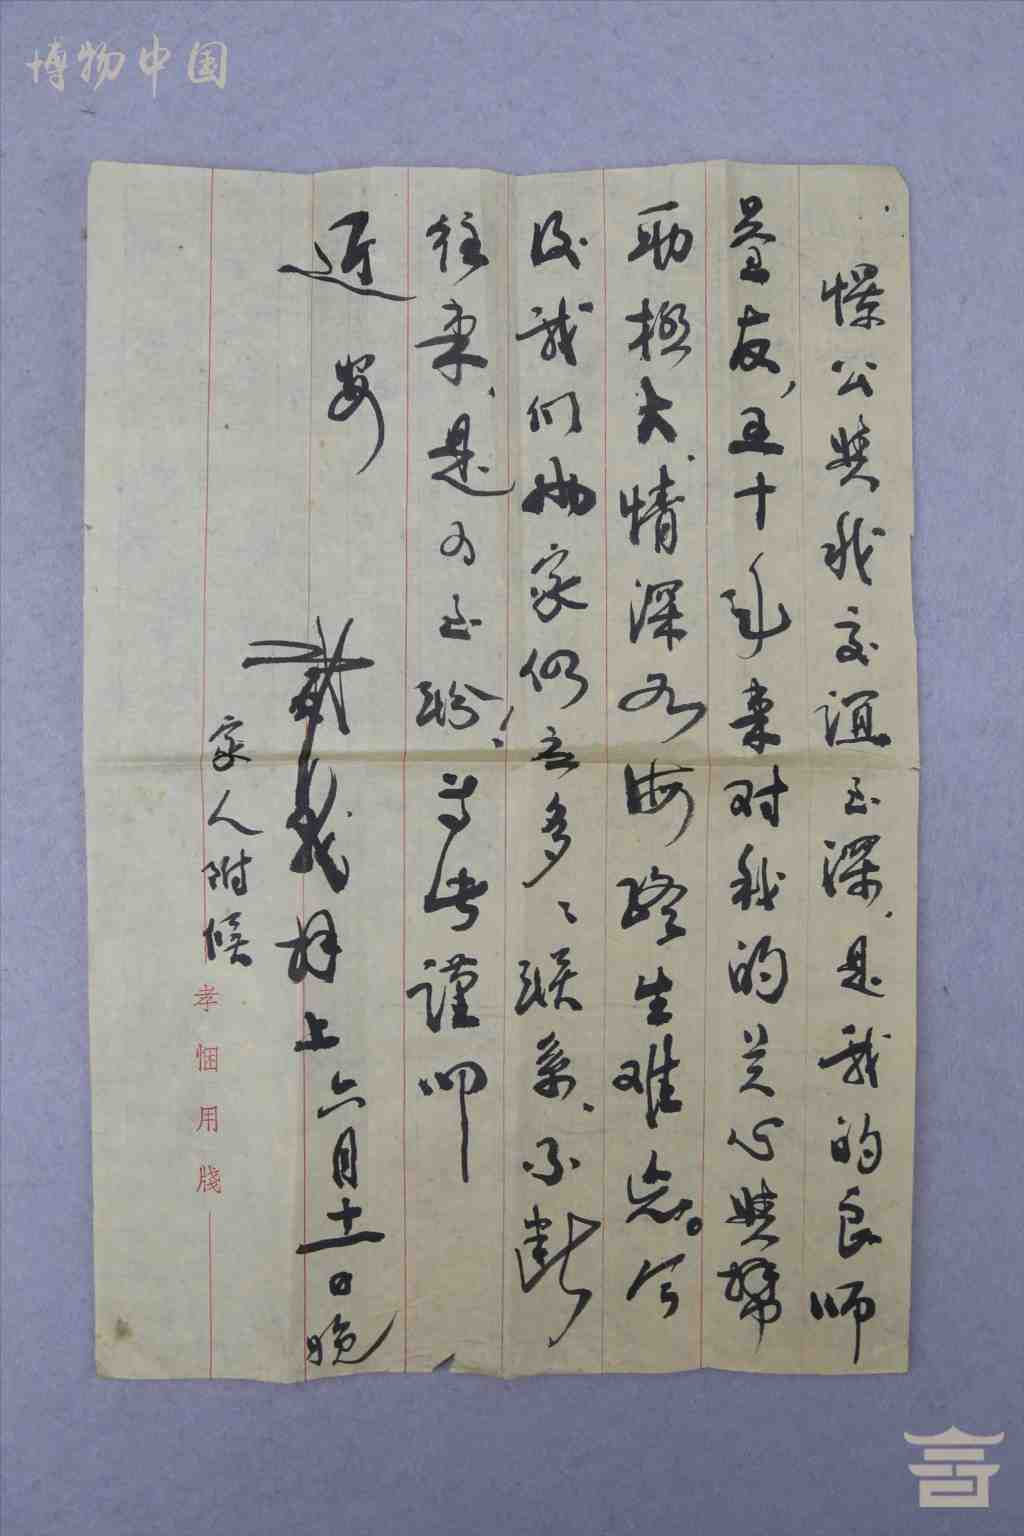 博物中国
憬公與我交谊至深，是我的良师
益友，五十年来对我的关心與帮
助极大，情深如海，终生难忘。今
后我们两家仍应多多联系，不断
往来，是为至盼！专此谨叩
近安
我拜上六月十一日晚
家人附候
孝悃用牋